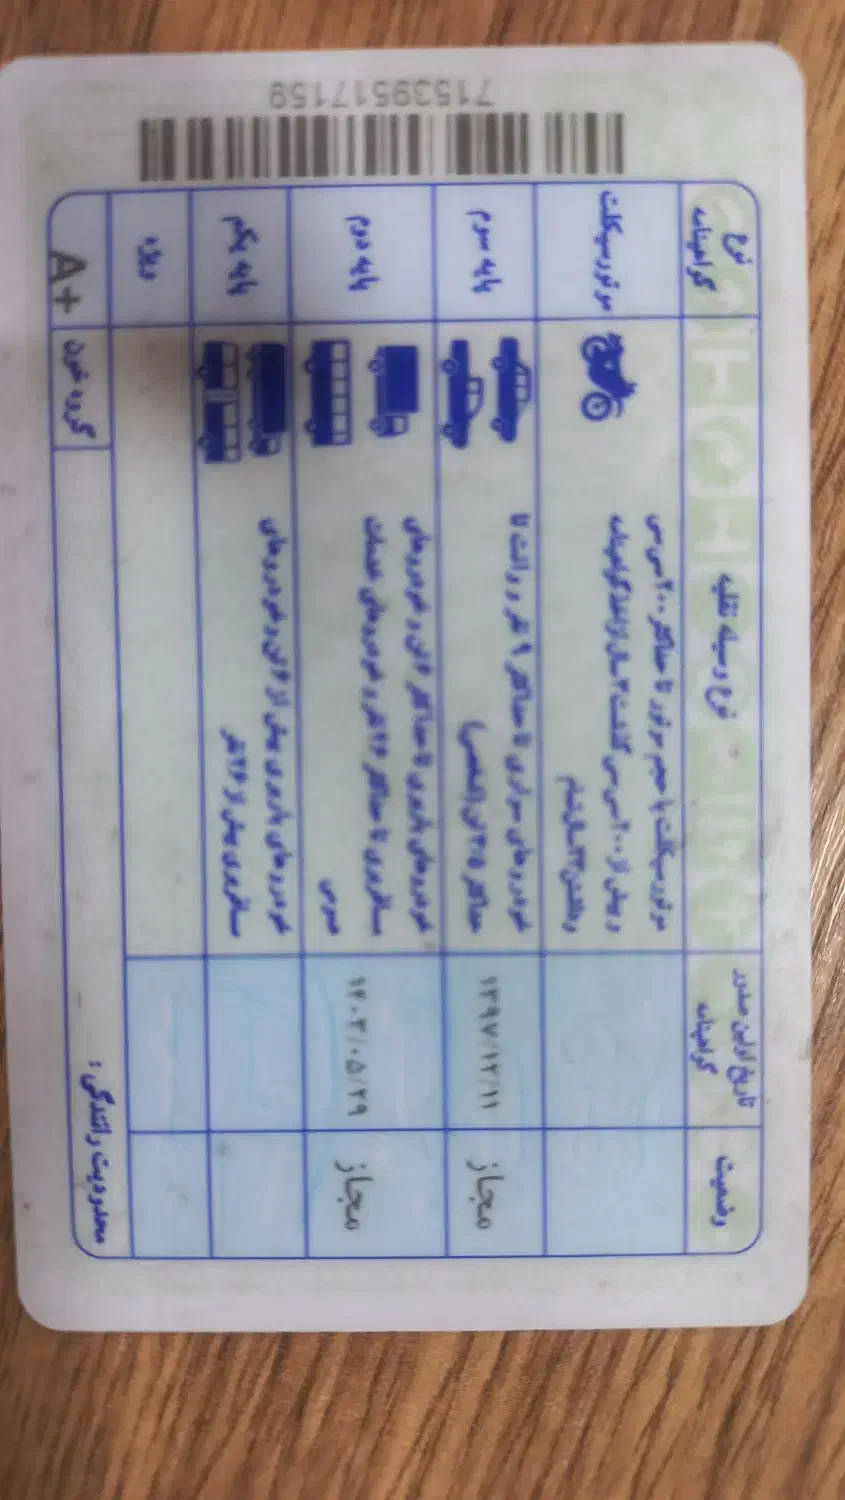 71539517159
نوع گواهینامه
نوع وسیله نقلیه
تاریخ اولین صدور گواهینامه
وضعیت
موتورسیکلت
موتورسیکلت با حجم موتور تا حداکثر ۲۰۰ سی سی
و بیش از ۲۰۰ سی سی گذشت ۳ سال از اخذ گواهینامه
و داشتن ۲۳ سال تمام
پایه سوم
خودروهای سواری تا حداکثر ۹ نفر و وانت تا
حداکثر ۳/۵ تن (شخصی)
۱۳۹۷/۱۲/۱۱
مجاز
پایه دوم
خودروهای باربری تا حداکثر ۶ تن و خودروهای
مسافربری تا حداکثر ۲۶ نفر و خودروهای خدمات
عمومی
۱۴۰۳/۰۵/۲۹
مجاز
پایه یکم
خودروهای باربری بیش از ۶ تن و خودروهای
مسافربری بیش از ۲۶ نفر
ویژه
A+
گروه خون
محدودیت رانندگی :